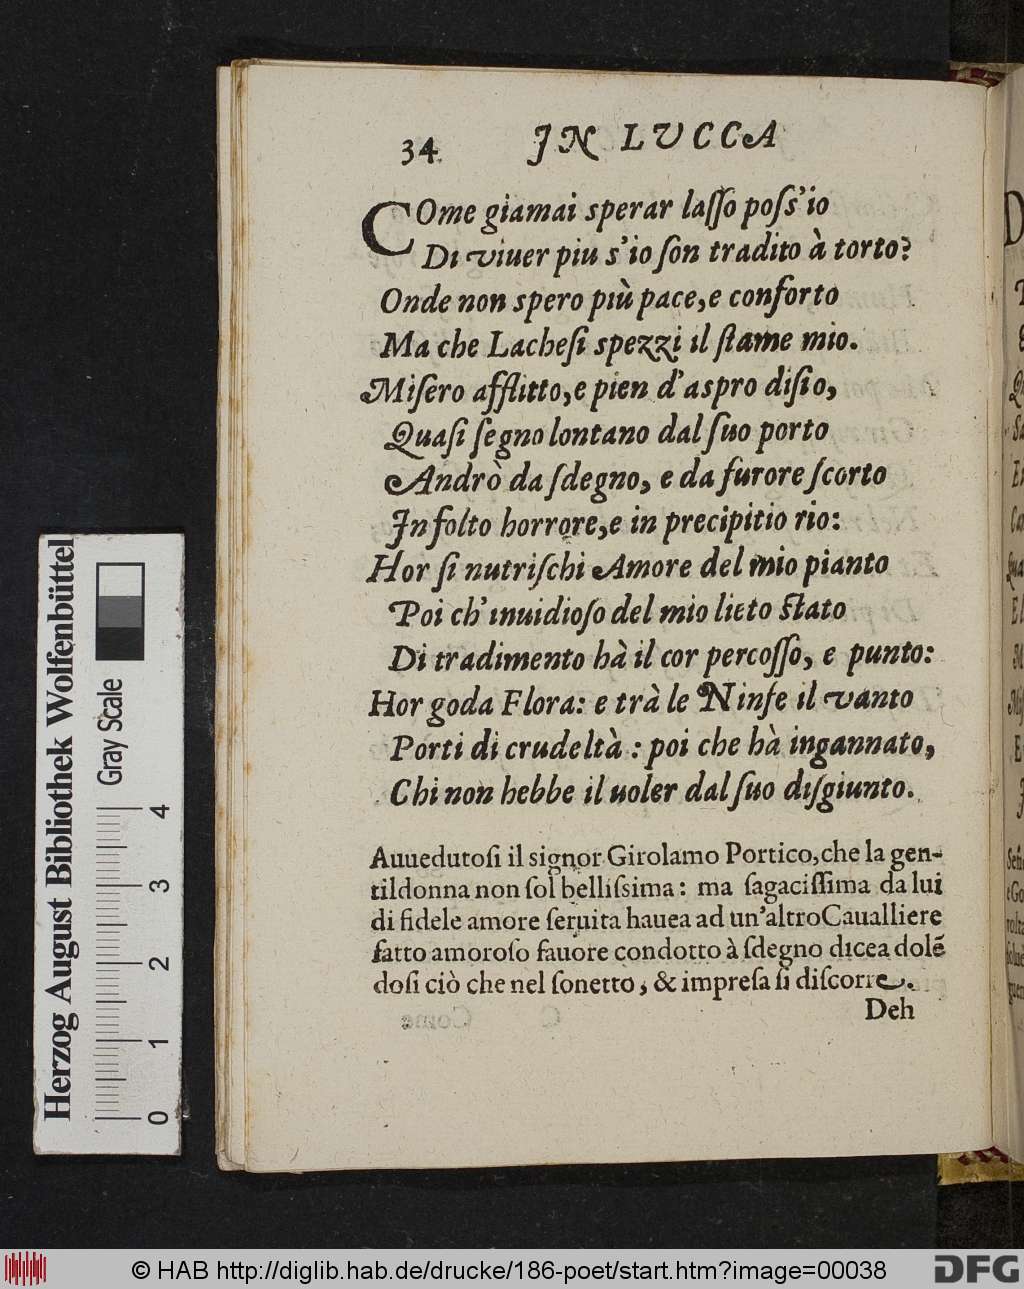 34 IN LVCCA
COme giamai sperar lasso poss'io
Di viuer piu s'io son tradito à torto?
Onde non spero più pace, e conforto
Ma che Lachesi spezzi il stame mio.
Misero afflitto, e pien d'aspro disio,
Quasi segno lontano dal suo porto
Andrò da sdegno, e da furore scorto
In folto horrore, e in precipitio rio:
Hor si nutrischi Amore del mio pianto
Poi ch'inuidioso del mio lieto stato
Di tradimento hà il cor percosso, e punto:
Hor goda Flora: e trà le Ninfe il vanto
Porti di crudeltà: poi che hà ingannato,
Chi non hebbe il uoler dal suo disgiunto.
Auuedutosi il signor Girolamo Portico, che la gen-
tildonna non sol bellissima: ma sagacissima da lui
di fidele amore seruita hauea ad un'altro Caualliere
fatto amoroso fauore condotto à sdegno dicea dolẽ
dosi ciò che nel sonetto, & impresa si discorre.
Deh
Herzog August Bibliothek Wolfenbüttel
Gray Scale
0 1 2 3 4
© HAB http://diglib.hab.de/drucke/186-poet/start.htm?image=00038
DFG